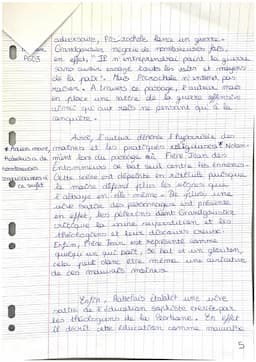 adversaire, Picrochole lance un guerre.
Grandgousier négocie de nombreuses fois,
en effet, "Il n'entreprendrai point la guerre
sans avoir essayé toutes les arts et moyens
de la paix". Mais Picrochole n'entend pas
raison. A travers ce passage, l'auteur met
en place une satire de la guerre offensive
ainsi que aux rois ne pensant qu'à la
conquête.
Ainsi, l'auteur dénonce l'hypocrisie des
moines et les pratiques religieuses* Notam-
ment lors du passage où Frère Jean des
Entommeures se bat seul contre les ennemis.
Cette scène est dépeinte en
le moine défend plus les vignes que
l'abbaye en elle-même. De plus, une
vive satire des personnages est présente
en effet, les pèlerins dont Grandgousier
critique la vaine superstition et les
théologiens et leur discours creuse.
Enfin, Frère Jean est représenté comme
quelqu'un qui boit, se bat et un glouton,
cela peut donc être même une caricature
de ces mauvais moines
Enfin, Rabelais établit une vive
satire de l'éducation sophiste exercée par
les théologiens de la Sorbonne. En effet
il décrit cette éducation comme mauvaise
5